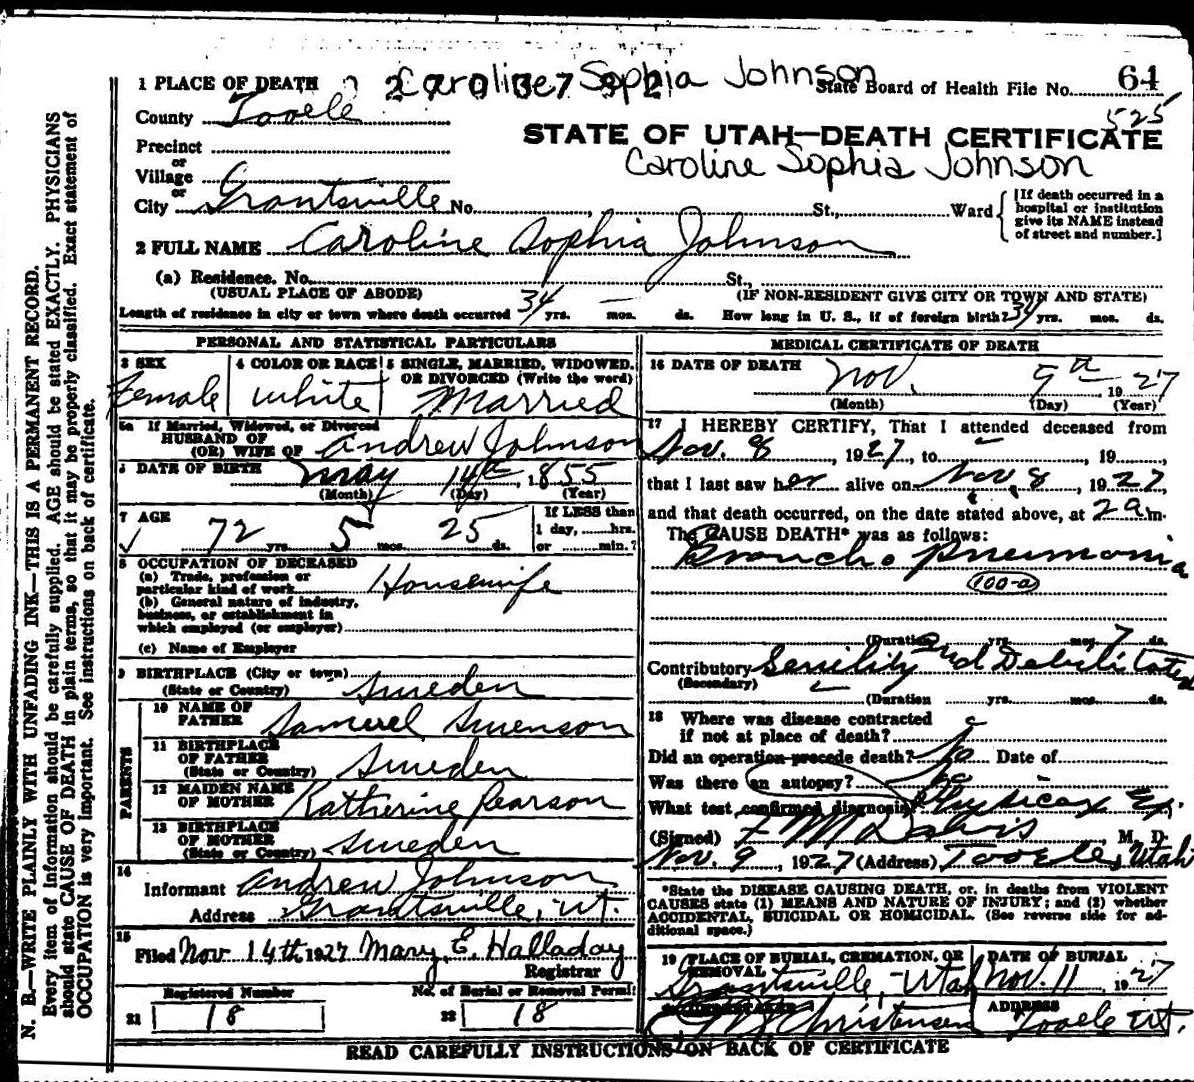 1 PLACE OF DEATH
Caroline Sophia Johnson
State Board of Health File No. 64
525
County Tooele
STATE OF UTAH—DEATH CERTIFICATE
Caroline Sophia Johnson
Precinct
or
Village
or
City Grantsville No. , St., Ward
[If death occurred in a hospital or institution give its NAME instead of street and number.]
2 FULL NAME Caroline Sophia Johnson
(a) Residence. No. St.,
(USUAL PLACE OF ABODE) (IF NON-RESIDENT GIVE CITY OR TOWN AND STATE)
Length of residence in city or town where death occurred 34 yrs. — mos. ds. How long in U. S., if of foreign birth? 34 yrs. mos. ds.
PERSONAL AND STATISTICAL PARTICULARS
3 SEX 4 COLOR OR RACE 5 SINGLE, MARRIED, WIDOWED, OR DIVORCED (Write the word)
Female White Married
5a If Married, Widowed, or Divorced
HUSBAND OF
(OR) WIFE OF Andrew Johnson
6 DATE OF BIRTH May 14th, 1855
(Month) (Day) (Year)
7 AGE 72 yrs. 5 mos. 25 ds.
If LESS than 1 day, hrs. or min.?
8 OCCUPATION OF DECEASED
(a) Trade, profession or particular kind of work Housewife
(b) General nature of industry, business, or establishment in which employed (or employer)
(c) Name of Employer
9 BIRTHPLACE (City or town)
(State or Country) Sweden
PARENTS
10 NAME OF FATHER Samuel Swenson
11 BIRTHPLACE OF FATHER (State or Country) Sweden
12 MAIDEN NAME OF MOTHER Katherine Pearson
13 BIRTHPLACE OF MOTHER (State or Country) Sweden
14 Informant Andrew Johnson
Address Grantsville, Ut.
15 Filed Nov 14th 1927 Mary E. Halladay
Registrar
Registered Number No. of Burial or Removal Permit
21 18 22 18
MEDICAL CERTIFICATE OF DEATH
16 DATE OF DEATH Nov. 9th 1927
(Month) (Day) (Year)
17 I HEREBY CERTIFY, That I attended deceased from
Nov. 8, 1927, to —, 19
that I last saw her alive on Nov. 8, 1927,
and that death occurred, on the date stated above, at 2 a m.
The CAUSE DEATH* was as follows:
Broncho pneumonia
100-a
(Duration yrs. mos. 7 ds.
Contributory Senility and Debilitated
(Secondary) (Duration yrs. mos. ds.
18 Where was disease contracted
if not at place of death?
Did an operation precede death? No Date of
Was there an autopsy? No
What test confirmed diagnosis Physical Ex.
(Signed) F M Davis M. D.
Nov. 9, 1927 (Address) Tooele, Utah
*State the DISEASE CAUSING DEATH, or, in deaths from VIOLENT
CAUSES state (1) MEANS AND NATURE OF INJURY; and (2) whether
ACCIDENTAL, SUICIDAL OR HOMICIDAL. (See reverse side for additional space.)
19 PLACE OF BURIAL, CREMATION, OR REMOVAL DATE OF BURIAL
Grantsville, Utah Nov. 11 1927
Christensen
ADDRESS
Tooele Ut.
READ CAREFULLY INSTRUCTIONS ON BACK OF CERTIFICATE
N. B.—WRITE PLAINLY WITH UNFADING INK—THIS IS A PERMANENT RECORD.
Every item of information should be carefully supplied. AGE should be stated EXACTLY. PHYSICIANS
should state CAUSE OF DEATH in plain terms, so that it may be properly classified. Exact statement of
OCCUPATION is very important. See instructions on back of certificate.